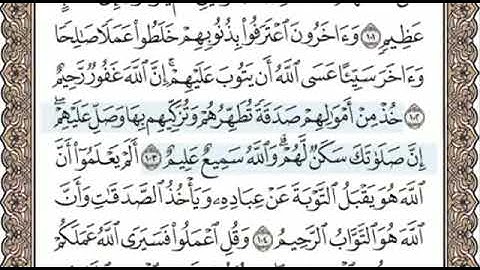 عَظِيمٍ ١٠١ وَءَاخَرُونَ ٱعْتَرَفُوا۟ بِذُنُوبِهِمْ خَلَطُوا۟ عَمَلًا صَـٰلِحًا
وَءَاخَرَ سَيِّئًا عَسَى ٱللَّهُ أَن يَتُوبَ عَلَيْهِمْ ۚ إِنَّ ٱللَّهَ غَفُورٌ رَّحِيمٌ
١٠٢ خُذْ مِنْ أَمْوَٰلِهِمْ صَدَقَةً تُطَهِّرُهُمْ وَتُزَكِّيهِم بِهَا وَصَلِّ عَلَيْهِمْ ۖ
إِنَّ صَلَوٰتَكَ سَكَنٌ لَّهُمْ ۗ وَٱللَّهُ سَمِيعٌ عَلِيمٌ ١٠٣ أَلَمْ يَعْلَمُوٓا۟ أَنَّ
ٱللَّهَ هُوَ يَقْبَلُ ٱلتَّوْبَةَ عَنْ عِبَادِهِۦ وَيَأْخُذُ ٱلصَّدَقَـٰتِ وَأَنَّ
ٱللَّهَ هُوَ ٱلتَّوَّابُ ٱلرَّحِيمُ ١٠٤ وَقُلِ ٱعْمَلُوا۟ فَسَيَرَى ٱللَّهُ عَمَلَكُمْ